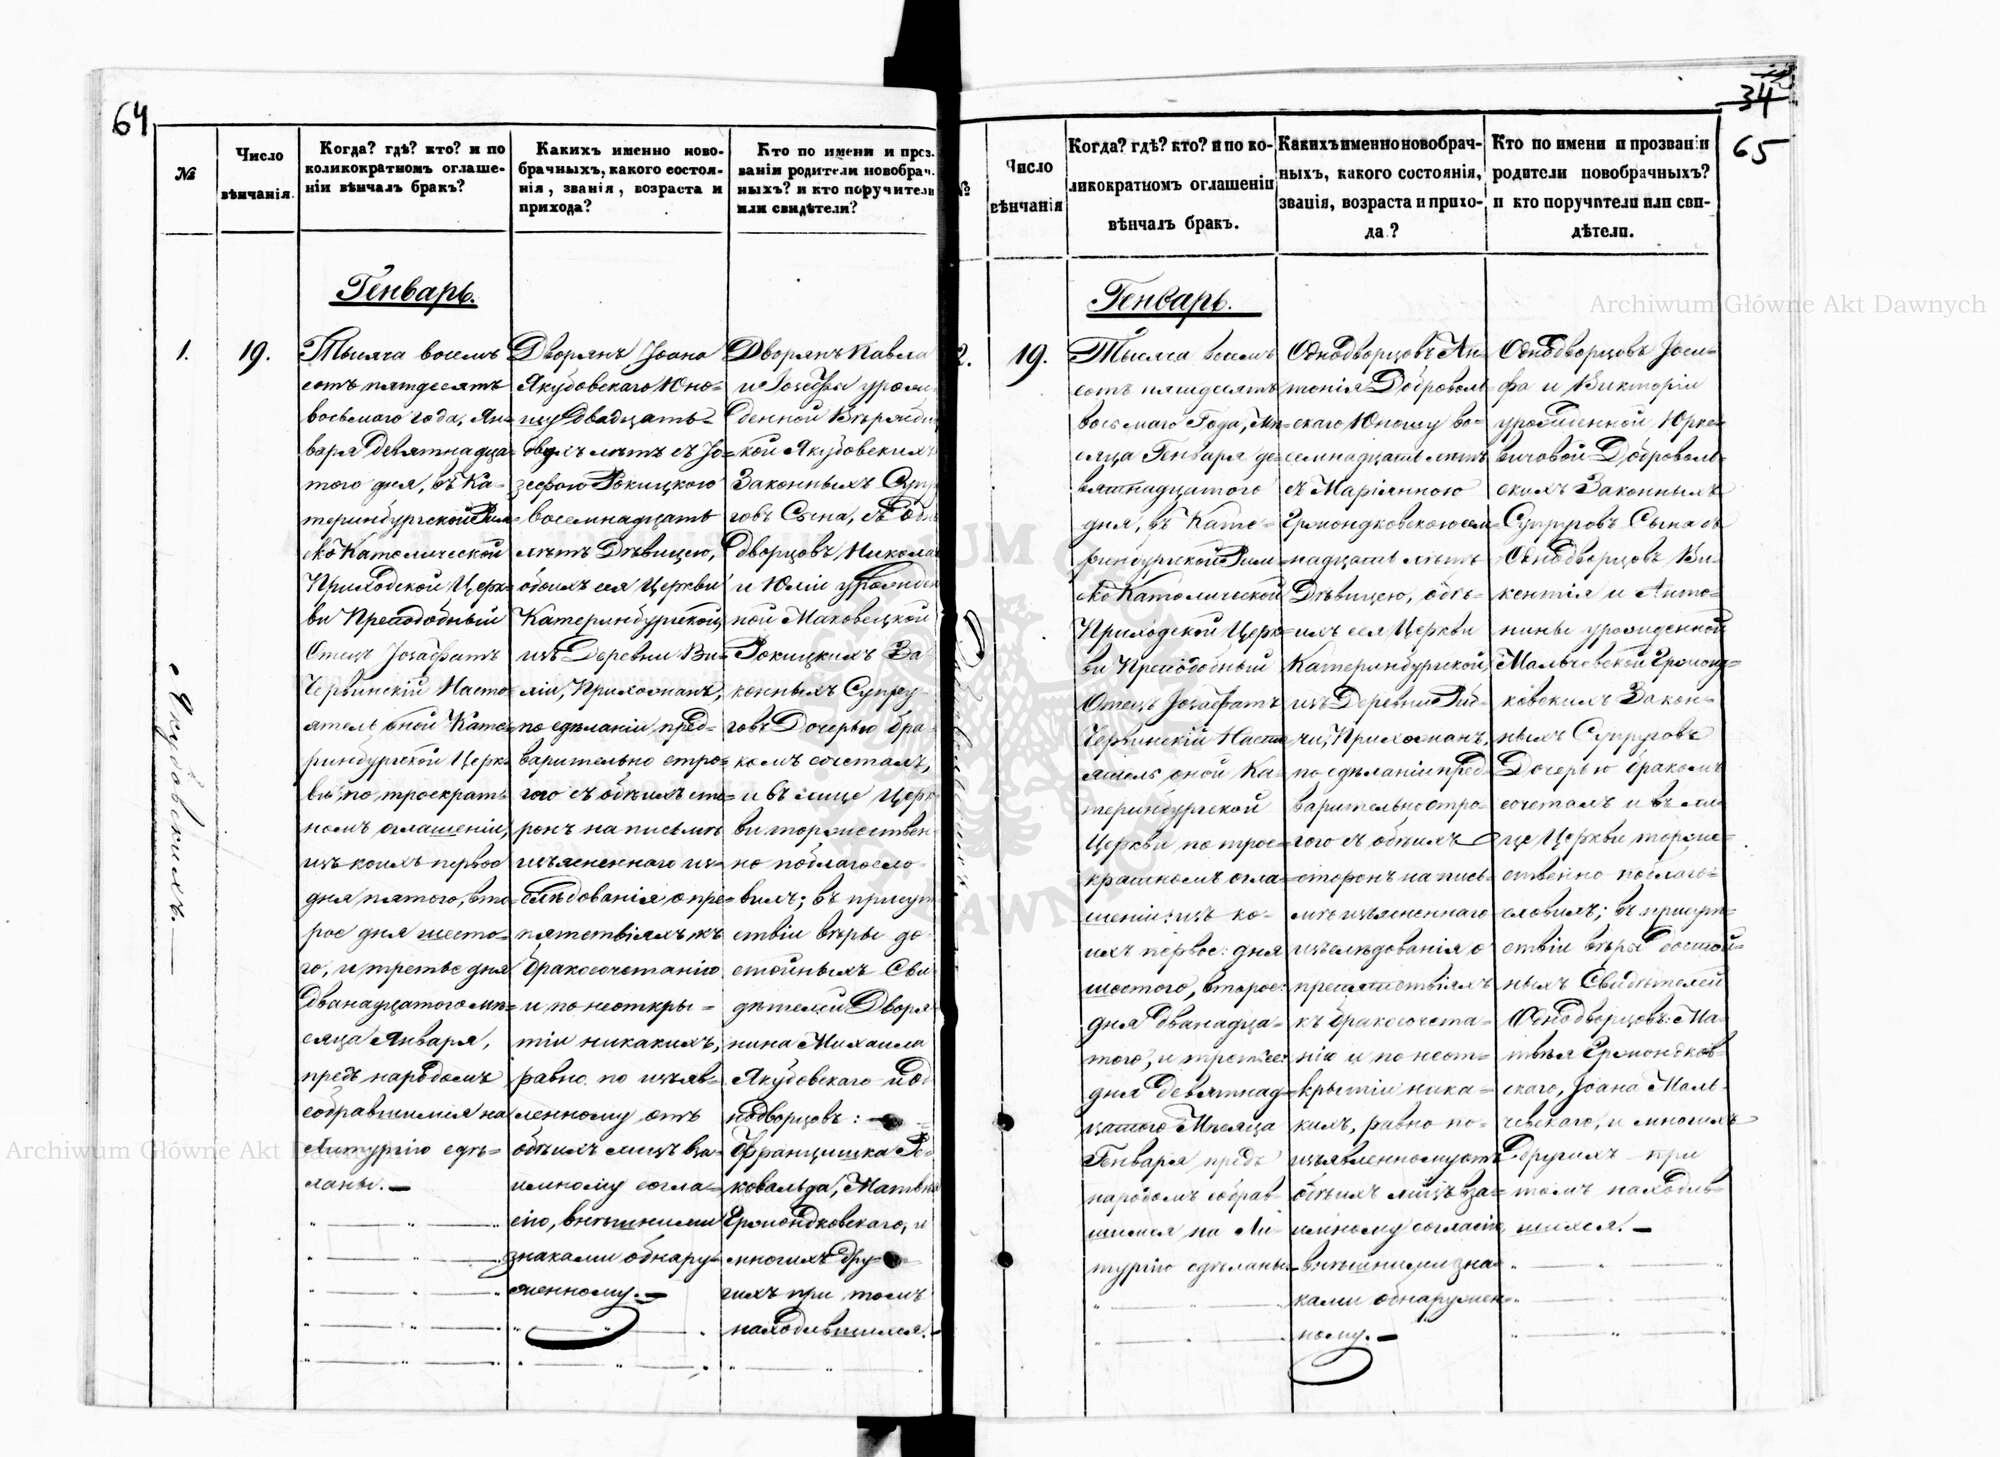 64
№
Число
вѣнчанія.
Когда? гдѣ? кто? и по
коликократномъ оглаше-
ніи вѣнчалъ бракъ?
Какихъ именно ново-
брачныхъ, какого состоя-
нія, званія, возраста и
прихода?
Кто по имени и проз-
ваніи родители новобрач-
ныхъ? и кто поручители
или свидѣтели?
1.
19.
Генварь.
Тысяча восемъ
сотъ пятдесятъ
восьмаго года, Ян-
варя девятнадца-
того дня, въ Ка-
теринбургской Рим-
ско Католической
Приходской Церк-
ви Преподобный
Отецъ Іозафатъ
Червинскій Насто-
ятель оной Кате-
ринбургской Церк-
ви, по троекрат-
номъ оглашеніи,
изъ коихъ первое
дня пятого, вто-
рое дня шесто-
го, и третье дня
дванадцатого мѣ-
сяца Января,
предъ народомъ
собравшимся на
Литургію сдѣ-
ланы.
Дворянъ Іоана
Якубовскаго Юно-
шу двадцать
двухъ лѣтъ съ Іо-
зефою Рокицкого
восемнадцать
лѣтъ Дѣвицею,
обоихъ сея Церкви
Катеринбургской,
изъ Деревни Ви-
ліи, Прихожанъ,
по сдѣланіи пред-
варительно стро-
гого съ обѣихъ сто-
ронъ на письмѣ
изъясненнаго из-
слѣдованія, о пре-
пятствіяхъ, къ
бракосочетанію
и по неоткры-
тіи никакихъ,
равно по изъяв-
ленному отъ
обѣихъ лицъ вза-
имному согла-
сію, внѣшними
знаками обнару-
женному.
Дворянъ Павла
и Іозефы урож-
денной
кой Якубовскихъ
Законныхъ Супру-
говъ Сына, съ Одно-
дворцовъ, Николая
и Юліи урожден-
ной Маковецкой
Рокицкихъ За-
конныхъ Супру-
говъ Дочерью бра-
комъ сочеталъ,
и въ лице Церк-
ви торжествен-
но поблагосло-
вилъ; въ присут-
ствіи вѣры до-
стойныхъ Сви-
дѣтелей Дворя-
нина Михаила
Якубовскаго и Од-
нодворцовъ:
Францишка
ковальда, Матвѣя
Ермондковскаго, и
многихъ дру-
гихъ при томъ
находившихся.
Якубовскихъ.
34
65
№
Число
вѣнчанія
Когда? гдѣ? кто? и по ко-
ликократномъ оглашеніи
вѣнчалъ бракъ.
Какихъ именно новобрач-
ныхъ, какого состоянія,
званія, возраста и прихо-
да?
Кто по имени и прозваніи
родители новобрачныхъ?
и кто поручители или сви-
дѣтели.
2.
19.
Генварь.
Тысяча восемъ
сотъ пятдесятъ
восьмаго Года, мѣ-
сяца Генваря де-
вятнадцатого
дня, въ Кате-
ринбургской Рим-
ско Католической
Приходской Церк-
ви Преподобный
Отецъ Іозафатъ
Червинскій Насто-
ятель оной Ка-
теринбургской
Церкви, по трое-
кратномъ огла-
шеніи: изъ ко-
ихъ первое: дня
шестого, второе:
дня дванадца-
того, и третіее:
дня девятнад-
цатого Мѣсяца
Генваря предъ
народомъ собрав-
шимся на Ли-
тургію сдѣланы
Однодворцовъ Ан-
тонія Доброволь-
скаго Юношу во-
семнадцати лѣтъ
съ Маріянною
Ермондковскою сем-
надцати лѣтъ
Дѣвицею, обѣ-
ихъ сея Церкви
Катеринбургской,
изъ Деревни
чи, Прихожанъ,
по сдѣланіи пред-
варительно стро-
гого съ обѣихъ
сторонъ на пись-
мѣ изъясненнаго
изслѣдованія о
препятствіяхъ
къ бракосочета-
нію и по неот-
крытіи ника-
кихъ, равно по
изъявленному отъ
обѣихъ лицъ вза-
имному согласію,
внѣшними зна-
ками обнаружен-
ному.
Однодворцовъ Іози-
фа и Викторіи
урожденной Юрке-
вичовой Доброволь-
скихъ Законныхъ
Супруговъ Сына съ
Однодворцовъ Ви-
кентія и Анто-
нины урожденной
Мальчевской Ермонд-
ковскихъ Закон-
ныхъ Супруговъ
Дочерью бракомъ
сочеталъ и въ ли-
це Церкви торже-
ственно поблаго-
словилъ; въ присут-
ствіи вѣры достой-
ныхъ Свидѣтелей
Однодворцовъ: Ма-
твѣя Ермондков-
скаго, Іоана Маль-
чевскаго, и многихъ
другихъ при
томъ находив-
шихся.
Archiwum Główne Akt Dawnych
Archiwum Główne Akt Dawnych